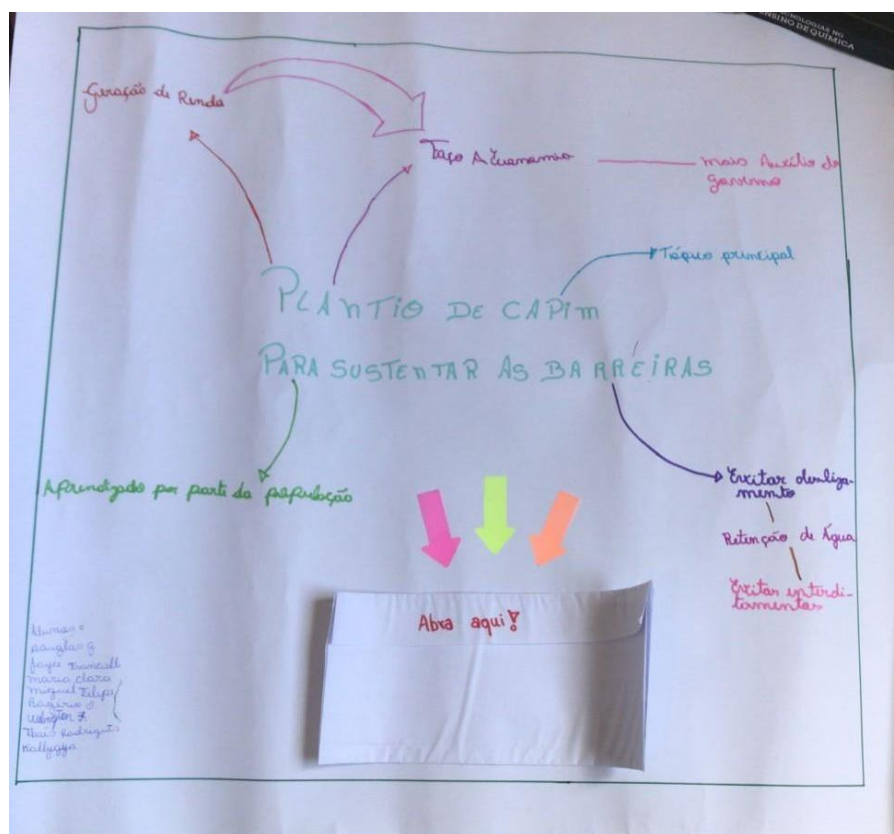 TECNOLOGIAS NO
ENSINO DE QUÍMICA
Geração de Renda
mais Auxílio do
governo
Tópico principal
PLANTIO DE CAPIM
PARA SUSTENTAR AS BARREIRAS
Aprendizado por parte da população
Evitar desliza-
mento
Retenção de Água
Evitar interdi-
tamentos
Abra aqui!
Alunos:
Douglas G
Joyce
maria clara
miguel Filipe
Rogério
Thaís Rodrigues
Kallygya